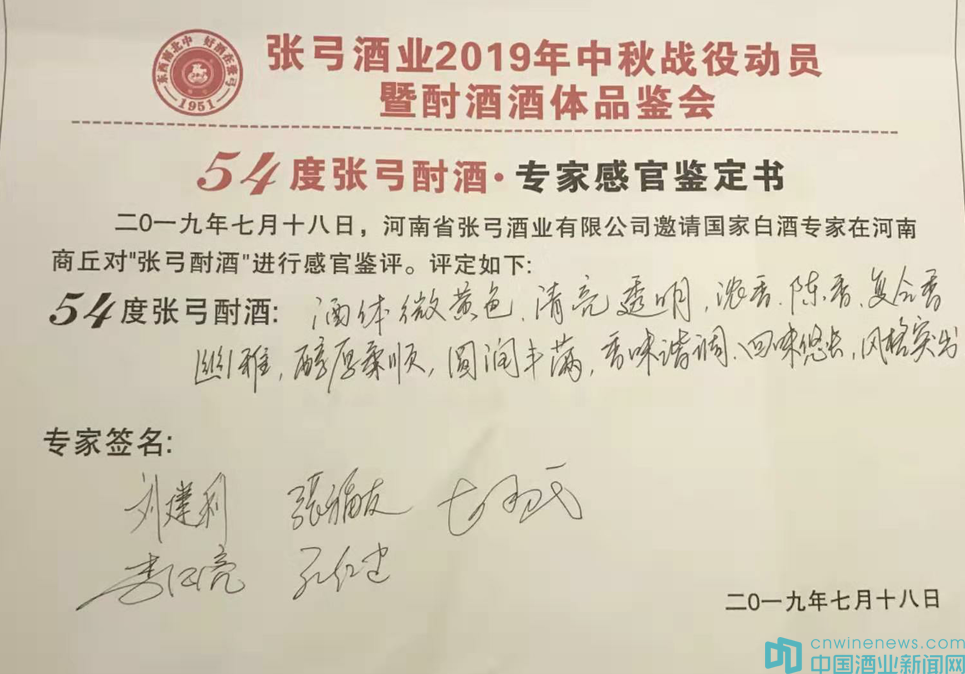 东西南北中 好酒在张弓
1951
张弓酒业2019年中秋战役动员
暨酎酒酒体品鉴会
54度张弓酎酒·专家感官鉴定书
二〇一九年七月十八日，河南省张弓酒业有限公司邀请国家白酒专家在河南
商丘对"张弓酎酒"进行感官鉴评。评定如下:
54度张弓酎酒: 酒体微黄色,清亮透明,浓香、陈香、复合香
幽雅,醇厚柔顺,圆润丰满,香味谐调、回味悠长,风格突出
专家签名:
刘建利 張福友
李红亮
二〇一九年七月十八日
cnwinenews.com
中国酒业新闻网